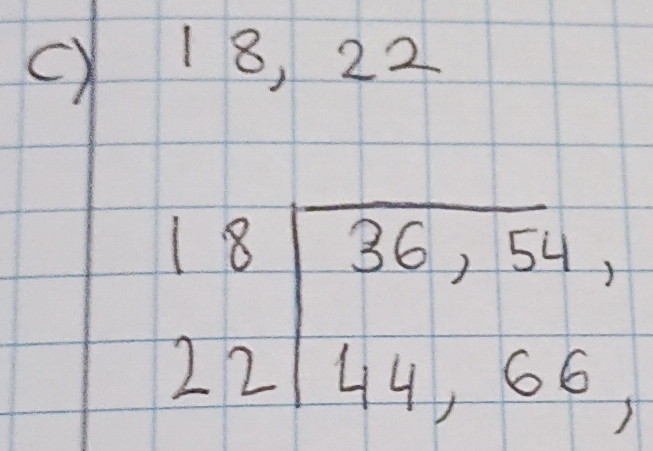 c) 18, 22
18 36, 54,
22 44, 66,